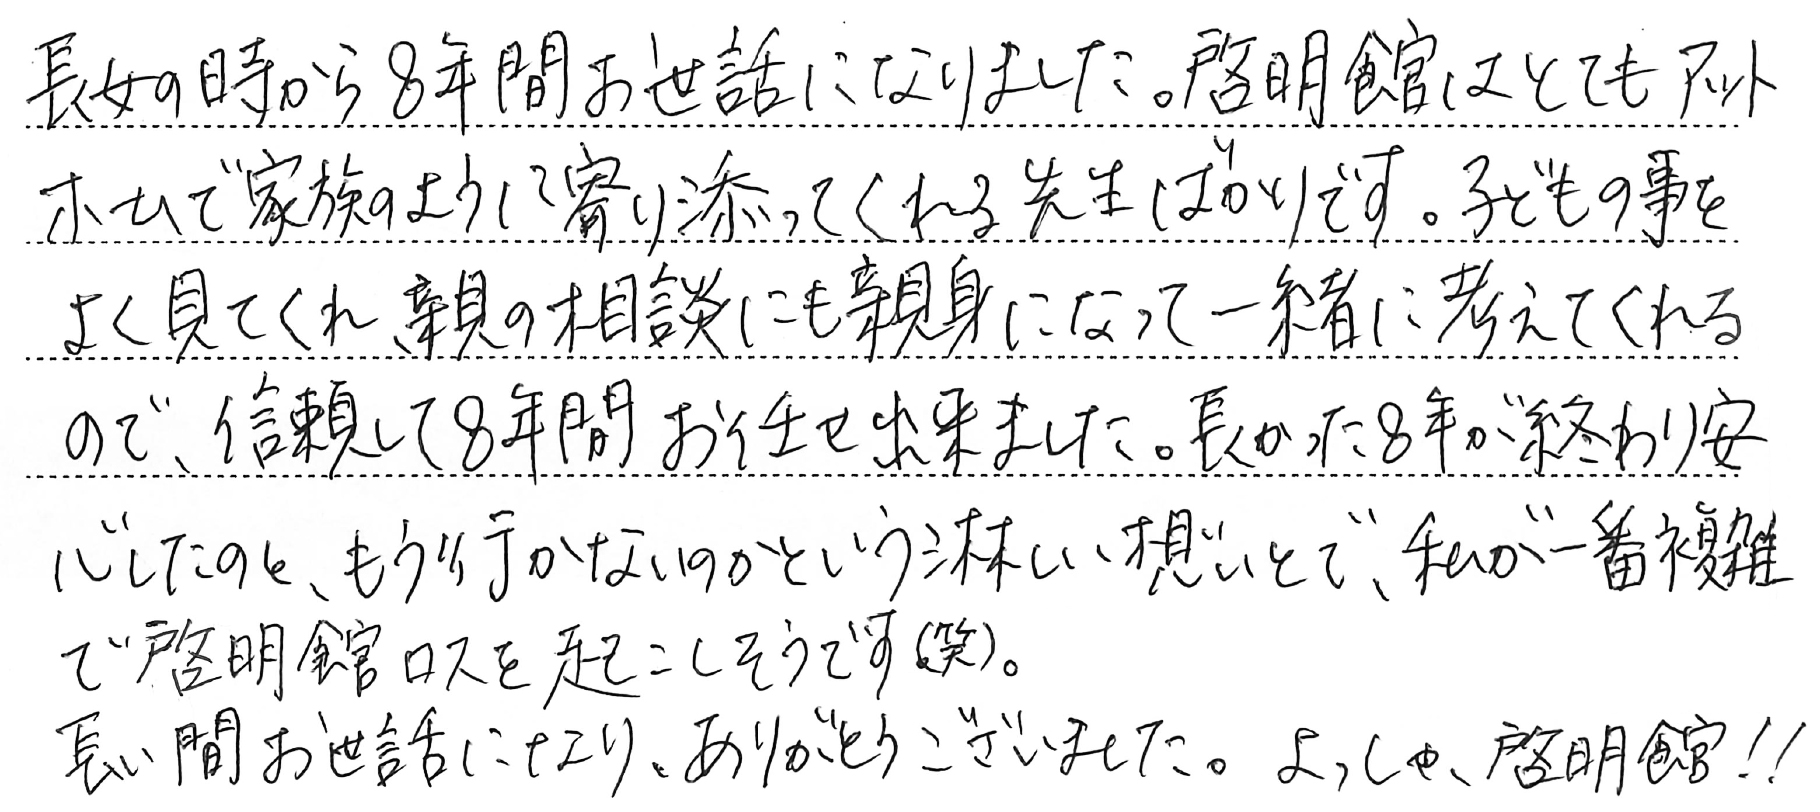 長女の時から8年間お世話になりました。啓明館はとてもアット
ホームで家族のように寄り添ってくれる先生ばかりです。子どもの事を
よく見てくれ、親の相談にも親身になって一緒に考えてくれる
ので、信頼して8年間お任せ出来ました。長かった8年が終わり安
心したのと、もう行かないのかという淋しい想いとで、私が一番複雑
で啓明館ロスを起こしそうです(笑)。
長い間お世話になり、ありがとうございました。よっしゃ、啓明館!!